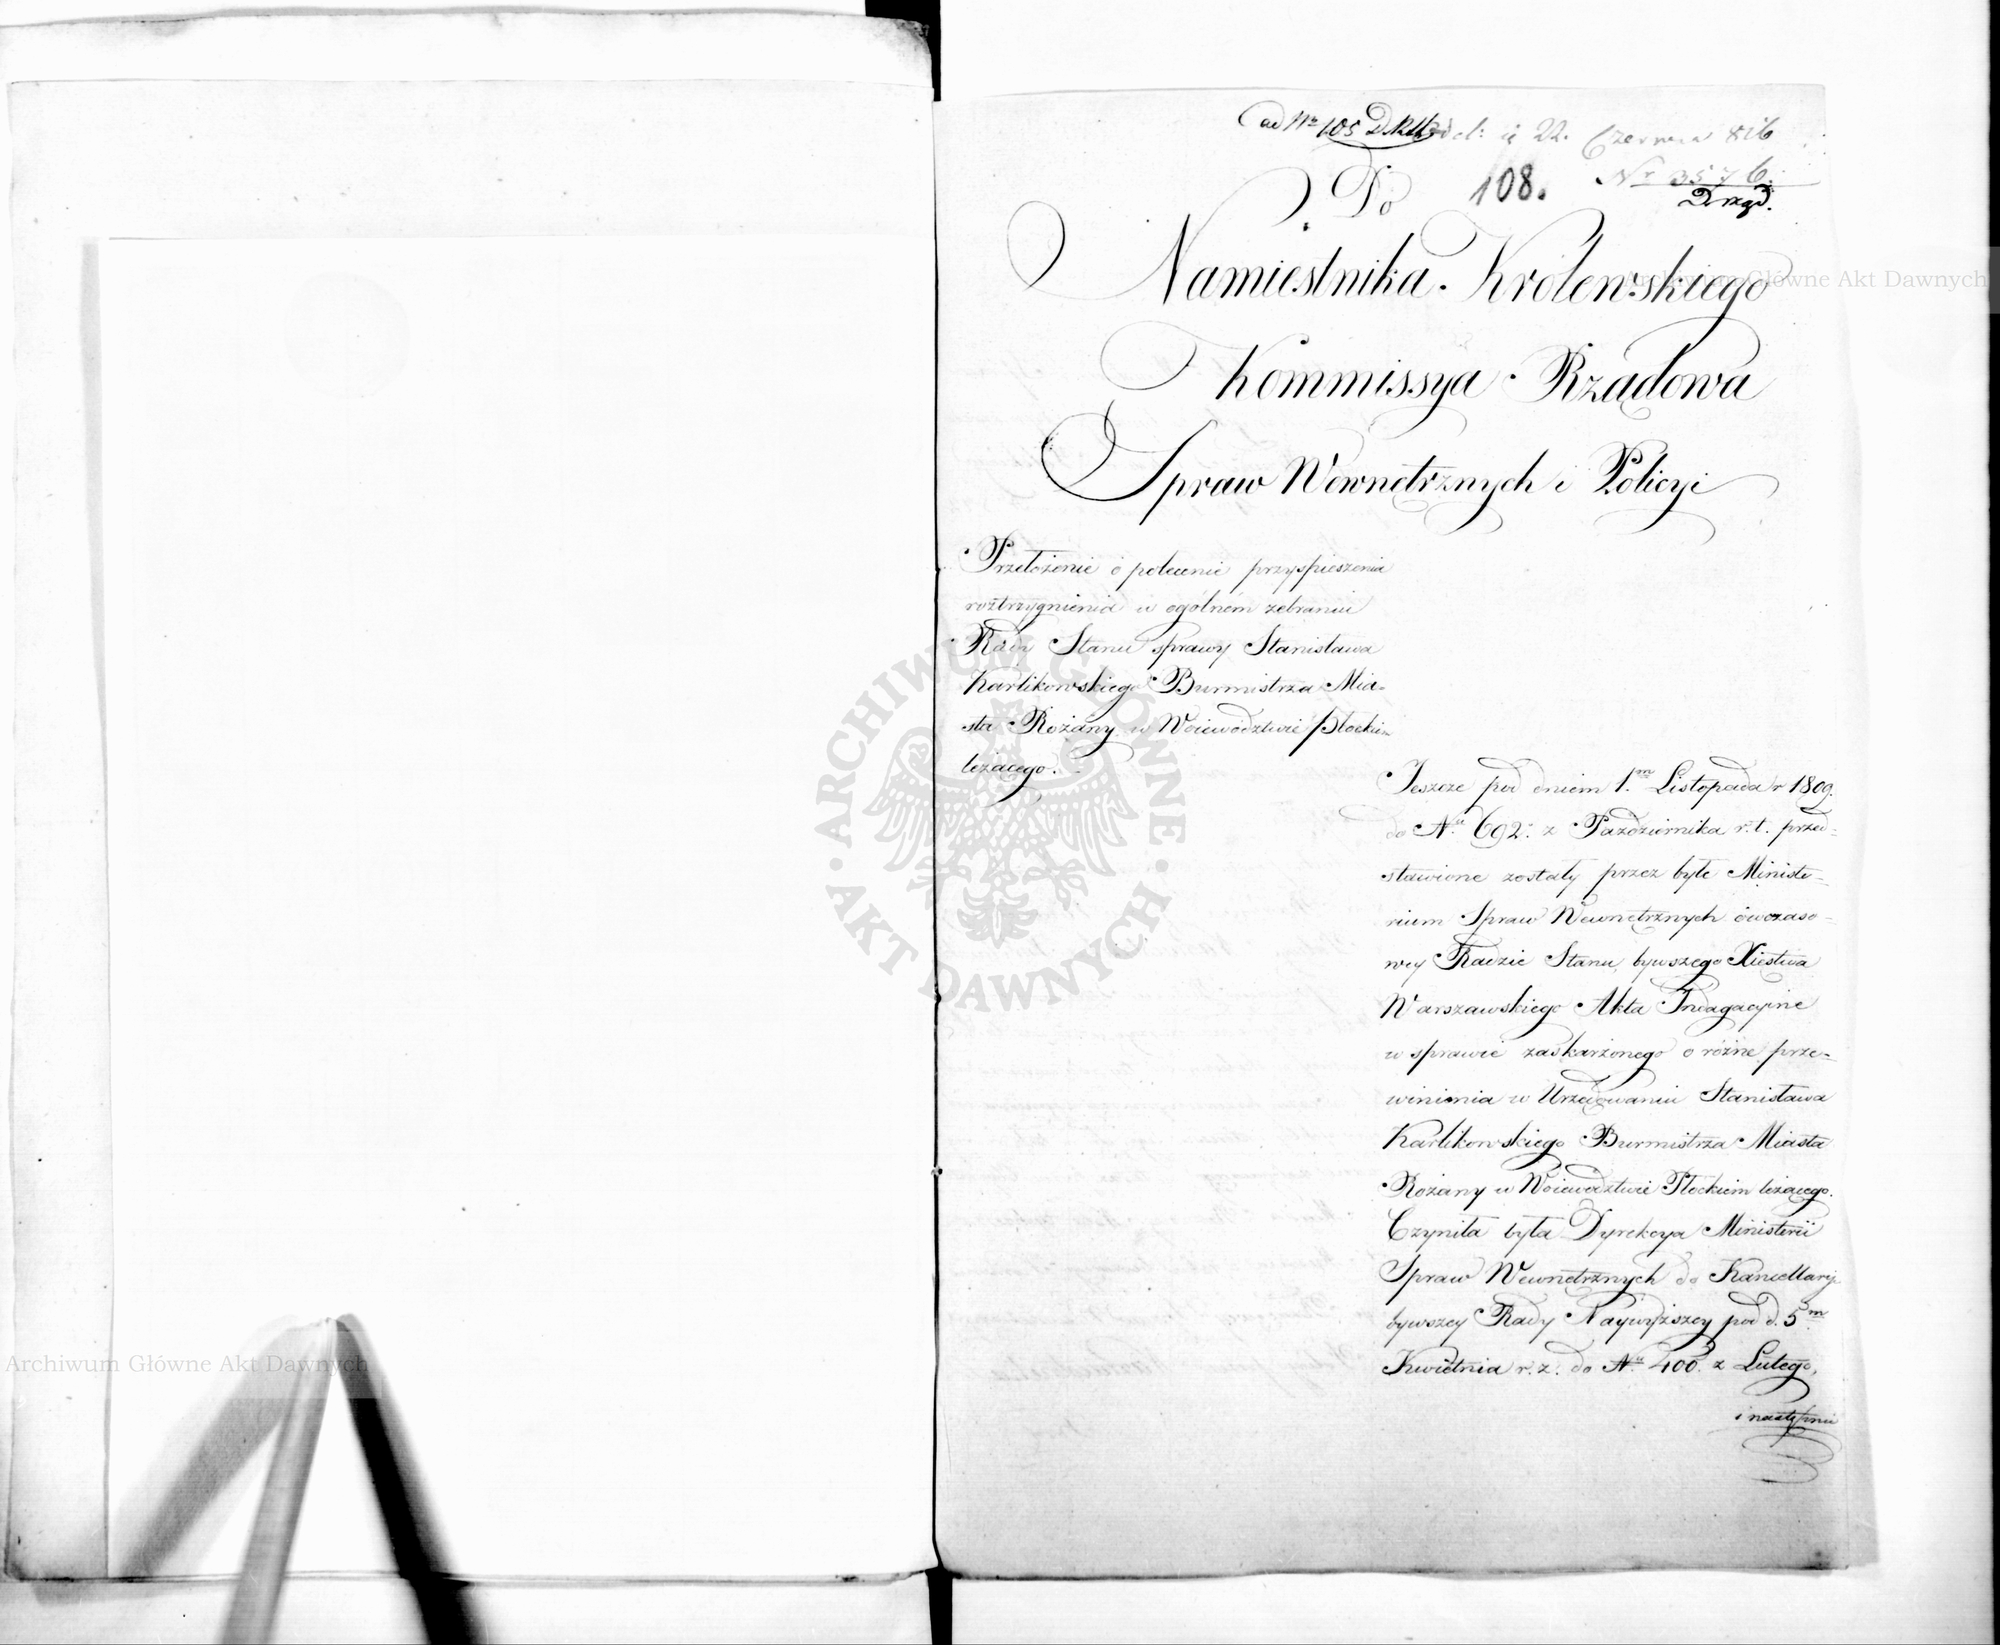 ad Nro 105 d: 22. Czerwca 816
108. Nr 3576.
Do
Namiestnika Królewskiego
Kommissya Rządowa
Spraw Wewnętrznych i Policyi
Przełożenie o polecenie przyspieszenia
roztrzygnienia w ogólnem zebraniu
Rady Stanu sprawy Stanisława
Karlikowskiego Burmistrza Mia-
sta Rożany w Woiewództwie Płockim
leżącego.
Jeszcze pod dniem 1.m Listopada r 1809.
do Nru 692. z Października r. t. przed-
stawione zostały przez byłe Ministe-
rium Spraw Wewnętrznych ówczaso-
wey Radzie Stanu bywszego Xięstwa
Warszawskiego Akta Indagacyine
w sprawie zaskarżonego o różne prze-
winienia w Urzędowaniu Stanisława
Karlikowskiego Burmistrza Miasta
Rożany w Woiewództwie Płockiem leżącego.
Czyniła była Dyrekcya Ministerii
Spraw Wewnętrznych do Kancellaryi
bywszey Rady Naywyższey pod d. 5m
Kwietnia r. z. do Nru 400. z Lutego,
i następnie
ARCHIWUM GŁÓWNE AKT DAWNYCH
Archiwum Główne Akt Dawnych
Archiwum Główne Akt Dawnych